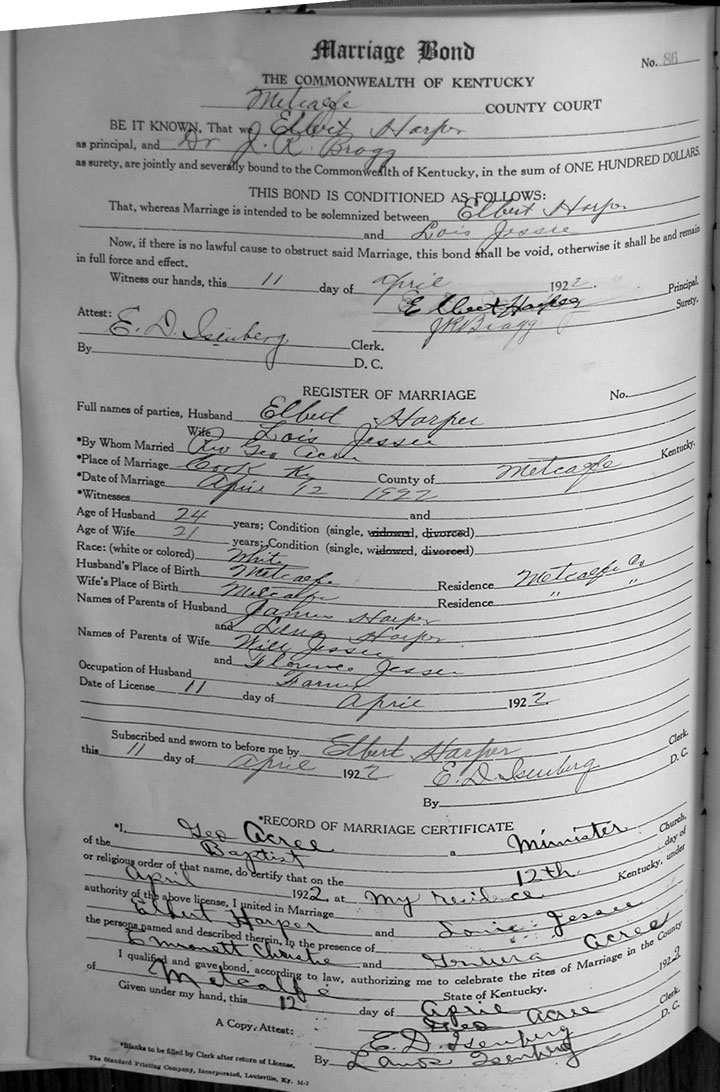 Marriage Bond
No. 86
THE COMMONWEALTH OF KENTUCKY
Metcalfe COUNTY COURT
BE IT KNOWN, That we Elbert Harper
as principal, and Dr J. R. Bragg
as surety, are jointly and severally bound to the Commonwealth of Kentucky, in the sum of ONE HUNDRED DOLLARS.
THIS BOND IS CONDITIONED AS FOLLOWS:
That, whereas Marriage is intended to be solemnized between Elbert Harper
and Lois Jessee
Now, if there is no lawful cause to obstruct said Marriage, this bond shall be void, otherwise it shall be and remain
in full force and effect.
Witness our hands, this 11 day of April 1922.
Elbert Harper Principal.
JR Bragg Surety.
Attest:
E. D. Isenberg Clerk.
By D. C.
REGISTER OF MARRIAGE No.
Full names of parties, Husband Elbert Harper
Wife Lois Jessee
*By Whom Married Rev Geo Acree
*Place of Marriage Cook Ky County of Metcalfe Kentucky.
*Date of Marriage April 12 1922
*Witnesses and
Age of Husband 24 years; Condition (single, widowed, divorced)
Age of Wife 21 years; Condition (single, widowed, divorced)
Race: (white or colored) White
Husband's Place of Birth Metcalfe Residence Metcalfe Co
Wife's Place of Birth Metcalfe Residence " "
Names of Parents of Husband James Harper
and Lena Harper
Names of Parents of Wife Will Jessee
and Florence Jessee
Occupation of Husband Farmer
Date of License 11 day of April 1922.
Subscribed and sworn to before me by Elbert Harper
this 11 day of April 1922 E. D. Isenberg Clerk.
By D. C.
*RECORD OF MARRIAGE CERTIFICATE
*I, Geo Acree a Minister Church,
of the Baptist
or religious order of that name, do certify that on the 12th day of
April 1922 at my residence Kentucky, under
authority of the above license, I united in Marriage
Elbert Harper and Jessee
the persons named and described therein, in the presence of
Emmett Christie and Acree
I qualified and gave bond, according to law, authorizing me to celebrate the rites of Marriage in the County
of Metcalfe State of Kentucky.
Given under my hand, this 12 day of April 1922
Geo Acree
A Copy, Attest: E. D. Isenberg Clerk.
By Isenberg D. C.
*Blanks to be filled by Clerk after return of License.
The Standard Printing Company, Incorporated, Louisville, Ky. M-7